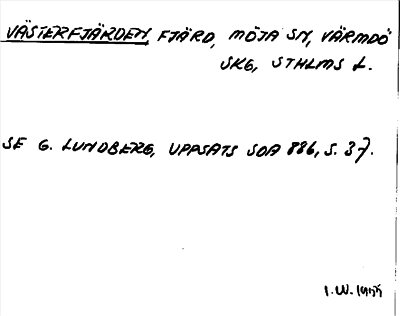 VÄSTERFJÄRDEN, FJÄRD, MÖJA SN, VÄRMDÖ
SKG, STHLMS L.
SE G. LUNDBERG, UPPSATS SOA 886, S. 37.
I.W. 1955